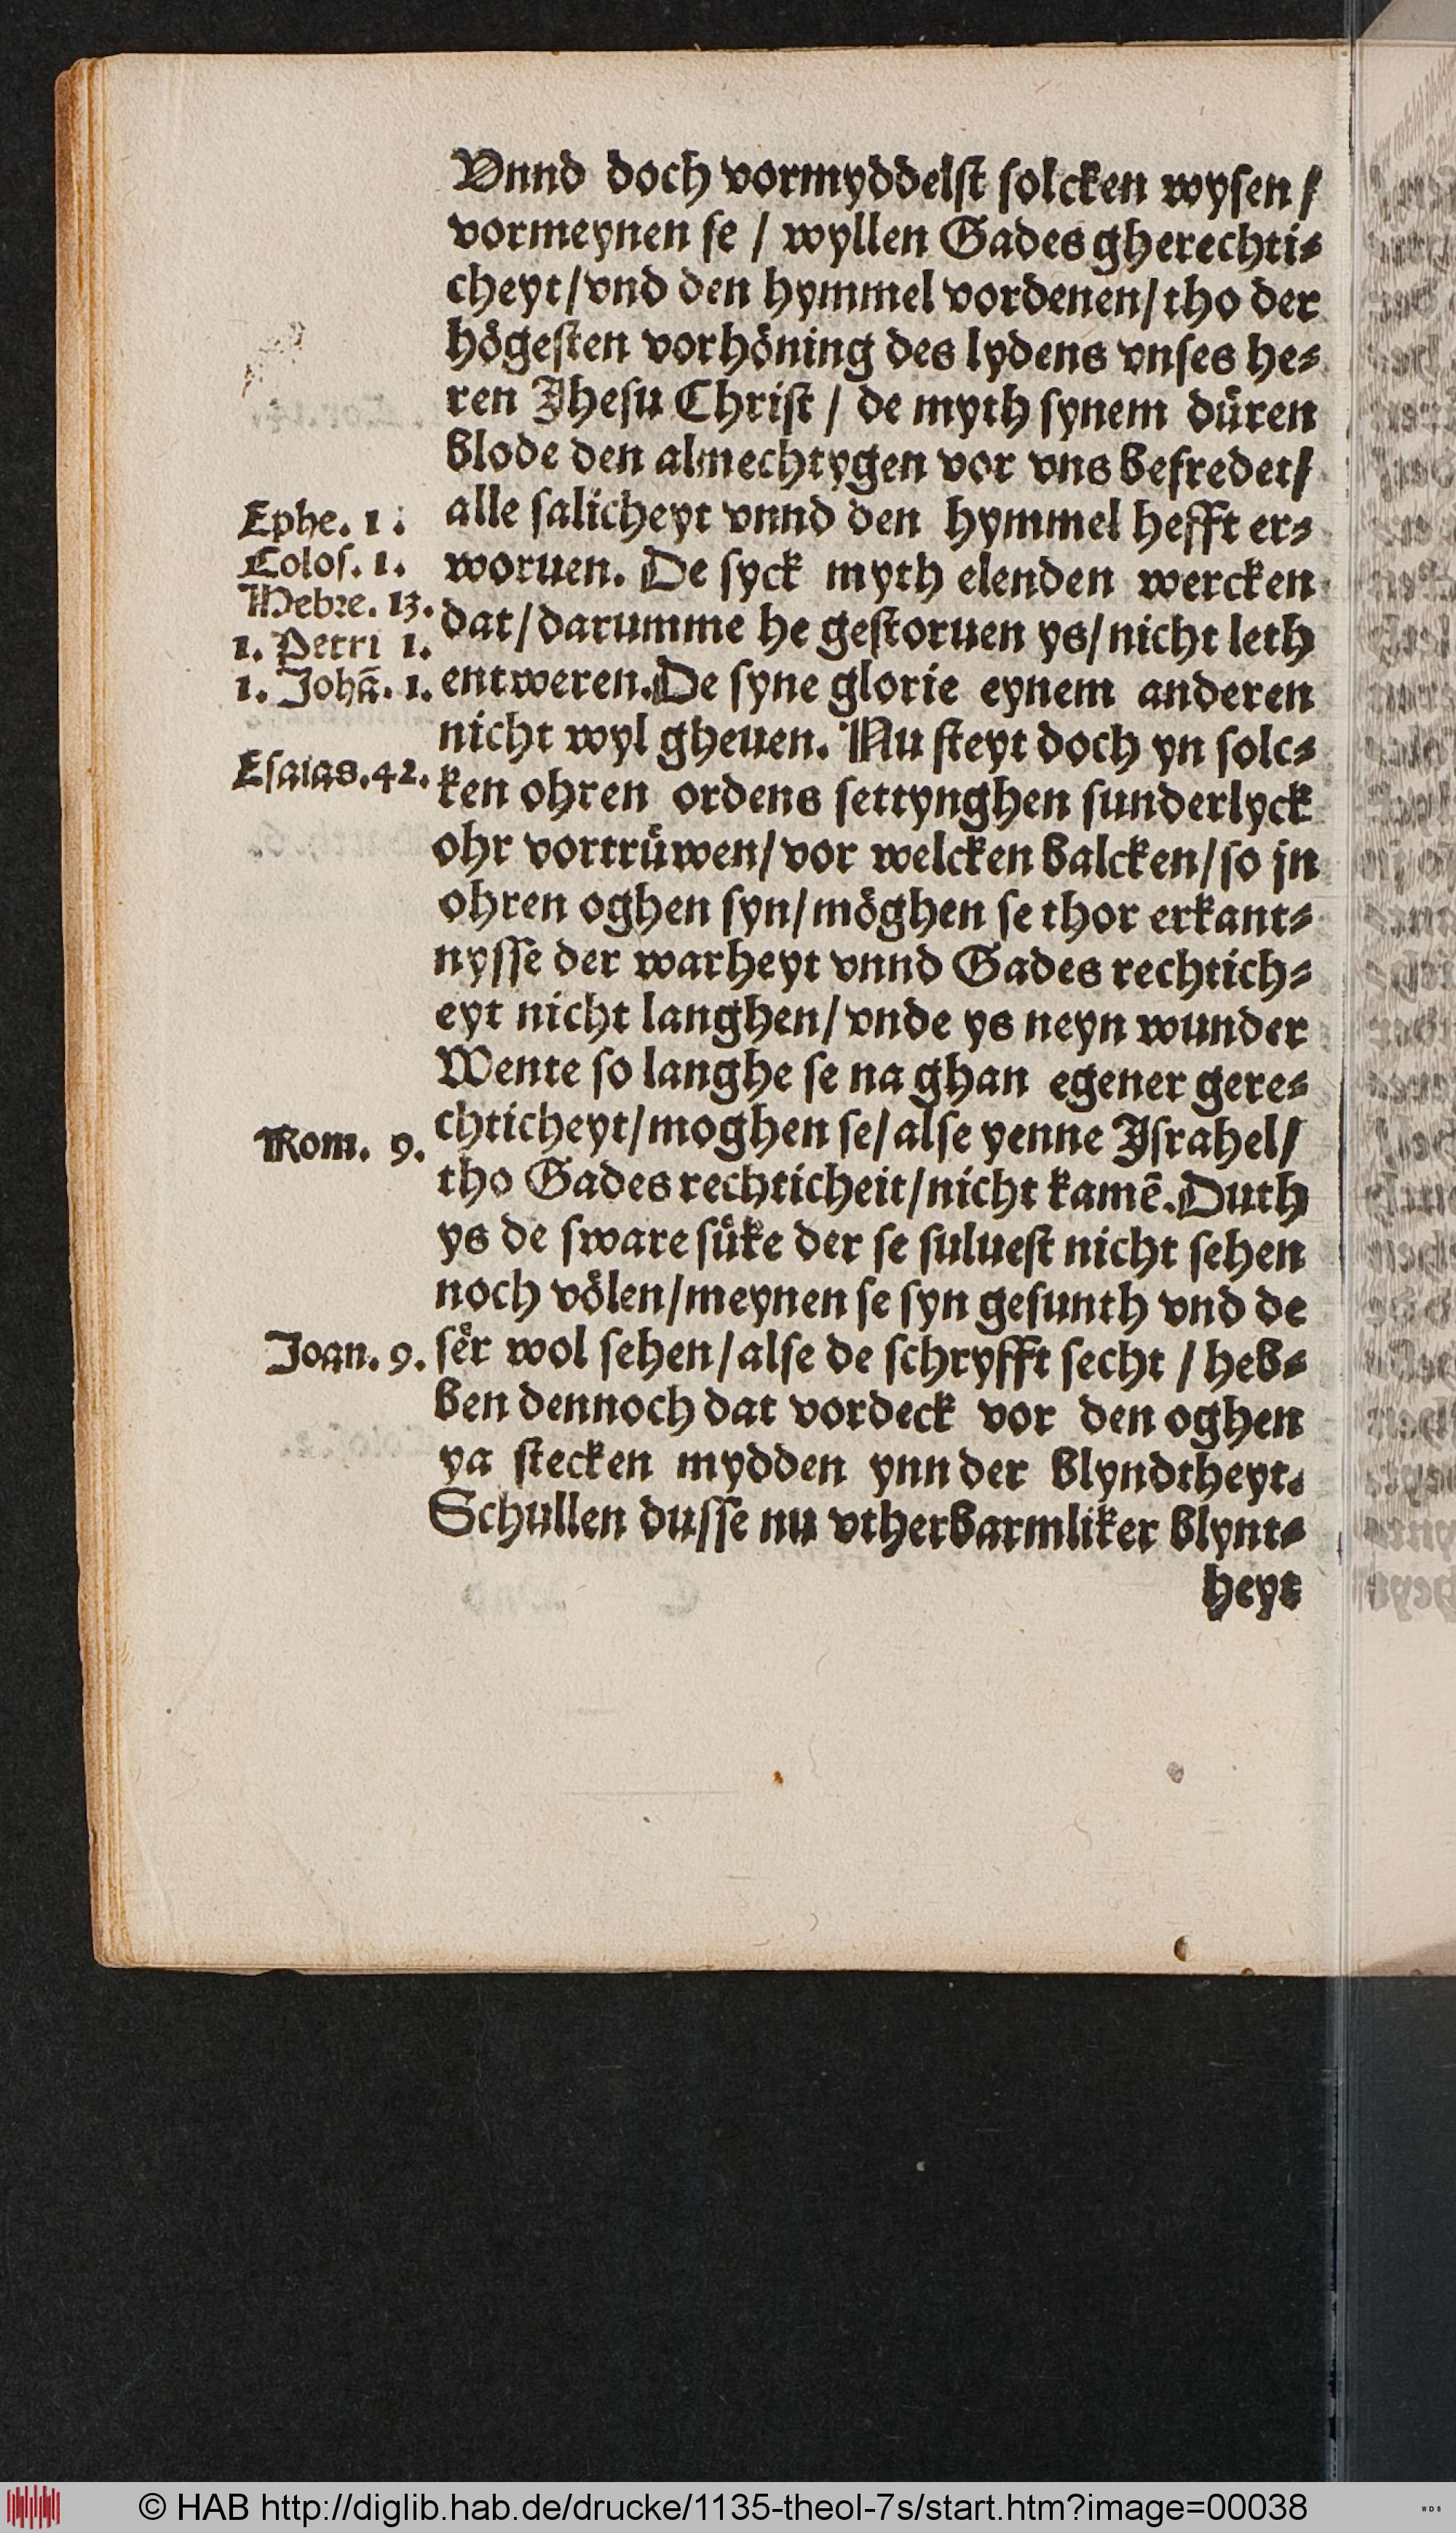 Vnnd doch vormyddelſt ſolcken wyſen /
vormeynen ſe / wyllen Gades gherechti⸗
cheyt / vnd den hymmel vordenen / tho der
högeſten vorhöning des lydens vnſes he⸗
ren Jheſu Chriſt / de myth ſynem düren
blode den almechtygen vor vns befredet /
Ephe. 1. alle ſalicheyt vnnd den hymmel hefft er⸗
Coloſ. 1. woruen. De ſyck myth elenden wercken
Hebre. 13. dat / darumme he geſtoruen ys / nicht leth
1. Petri 1.
1. Johā. 1. entweren. De ſyne glorie eynem anderen
nicht wyl gheuen. Nu ſteyt doch yn ſolc⸗
Eſaias. 42. ken ohren ordens ſettynghen ſunderlyck
ohr vortrüwen / vor welcken balcken / ſo jn
ohren oghen ſyn / möghen ſe thor erkant⸗
nyſſe der warheyt vnnd Gades rechtich⸗
eyt nicht langhen / vnde ys neyn wunder
Wente ſo langhe ſe na ghan egener gere⸗
Rom. 9. chticheyt / moghen ſe / alſe yenne Jſrahel /
tho Gades rechticheit / nicht kamē. Duth
ys de ſware ſüke der ſe ſulueſt nicht ſehen
noch völen / meynen ſe ſyn geſunth vnd de
Joan. 9. ſeͤr wol ſehen / alſe de ſchryfft ſecht / heb⸗
ben dennoch dat vordeck vor den oghen
ya ſtecken mydden ynn der blyndtheyt.
Schullen duſſe nu vtherbarmliker blynt⸗
heyt
© HAB http://diglib.hab.de/drucke/1135-theol-7s/start.htm?image=00038